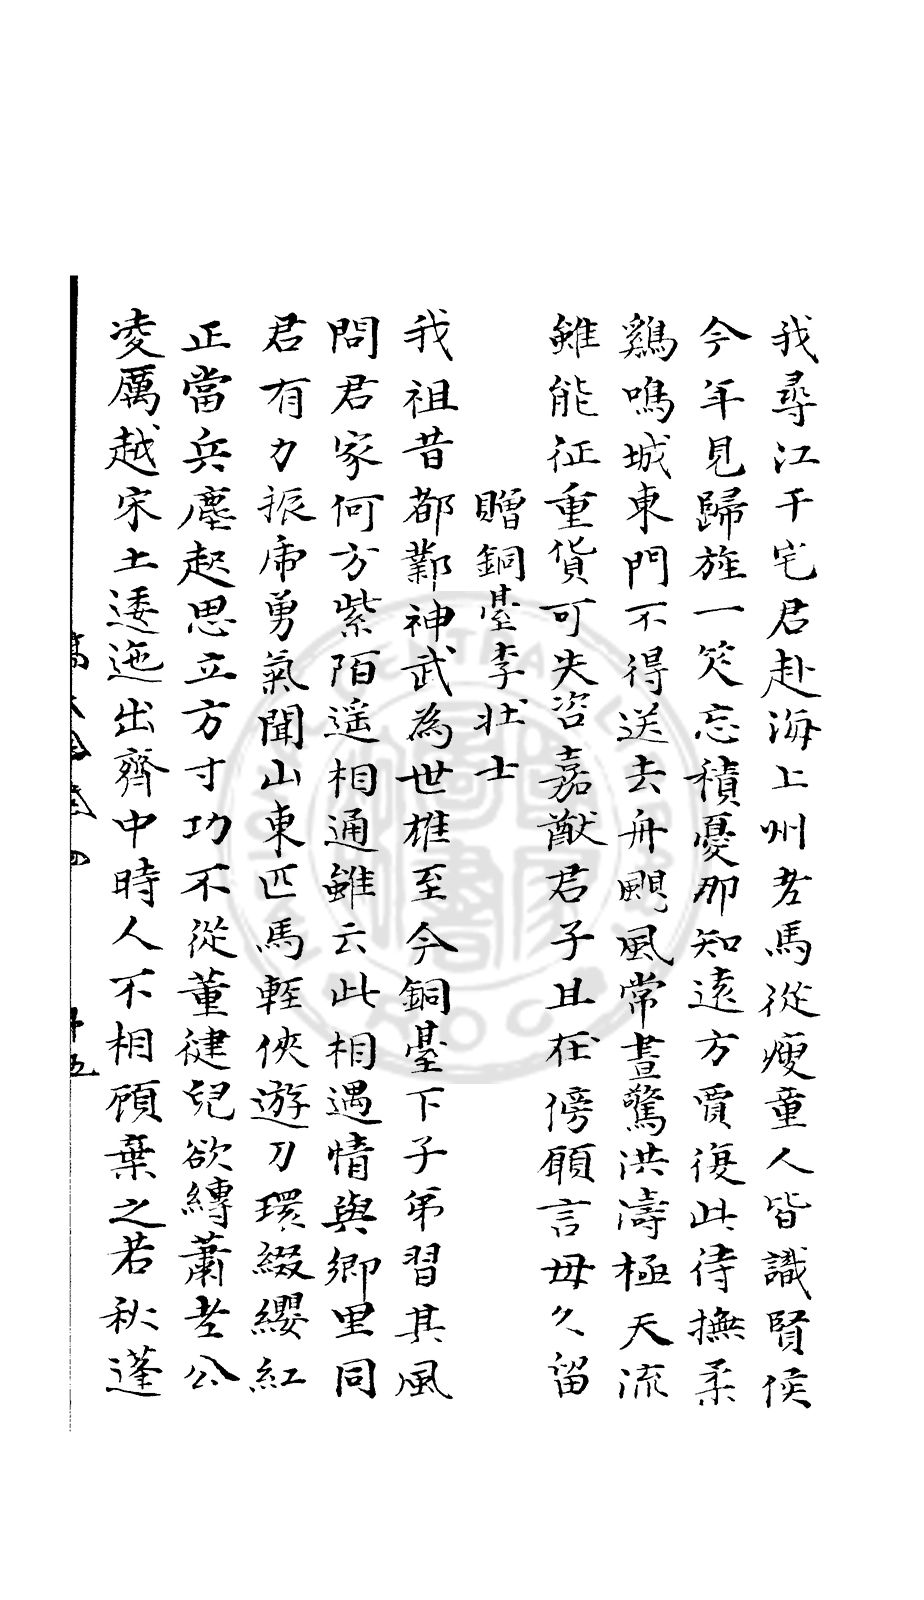 我尋江干宅君赴海上州老馬從瘦童人皆識賢侯
今年見歸旌一笑忘積憂那知遠方賈復此待撫柔
鷄鳴城東門不得送去舟颶風常晝驚洪濤極天流
雖能征重貨可失咨嘉猷君子且在傍願言毋久留
贈銅臺李壯士
我祖昔都鄴神武為世雄至今銅臺下子弟習其風
問君家何方紫陌遥相通雖云此相遇情與鄉里同
君有力振席勇氣聞山東匹馬輕俠遊刀環綴纓紅
正當兵塵起思立方寸功不從董健兒欲縛蕭老公
凌厲越宋土逶迤出齊中時人不相顧棄之若秋蓬